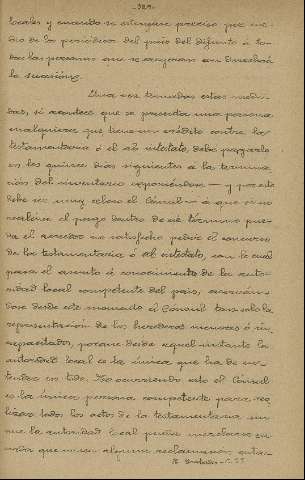 -329-
locales y cuando se estime preciso por me-
dio de los periódicos del país del difunto á to-
das las personas que se crean con derecho á
la sucesión.
Una vez tomadas estas medi-
das, si acontece que se presenta una persona
cualquiera que tiene un crédito contra la
testamentaría ó el ab intestato, debe pagarlo
en los quince días siguientes á la termina-
ción del inventario oponiéndose y por esto
debe ser muy celoso el Cónsul á que si no
realiza el pago dentro de ese término pue-
da el acreedor no satisfecho pedir el concurso
de la testamentaría ó ab intestato, con lo cual
pasa el asunto á conocimiento de la auto-
ridad local competente del país,
dose desde este momento el Cónsul tan solo la
representación de los herederos menores ó in-
capacitados, porque desde aquel instante la
autoridad local es la única que ha de en-
tender en todo. No ocurriendo esto el Cónsul
es la única persona competente para rea-
lizar todos los actos de la testamentaría sin
que la autoridad local pueda mezclarse en
nada que no sea alguna reclamación